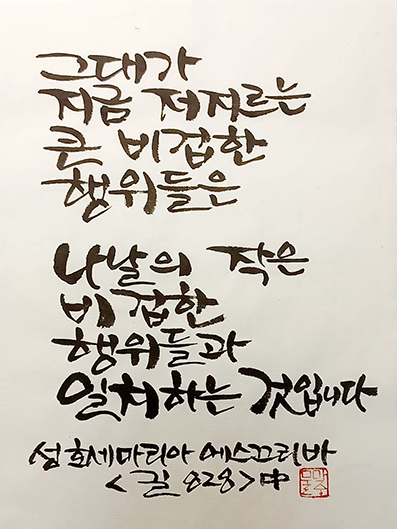 그대가
지금 저지르는
큰 비겁한
행위들은
나날의 작은
비겁한
행위들과
일치하는 것입니다
성 호세마리아 에스끄리바
<길 828> 中